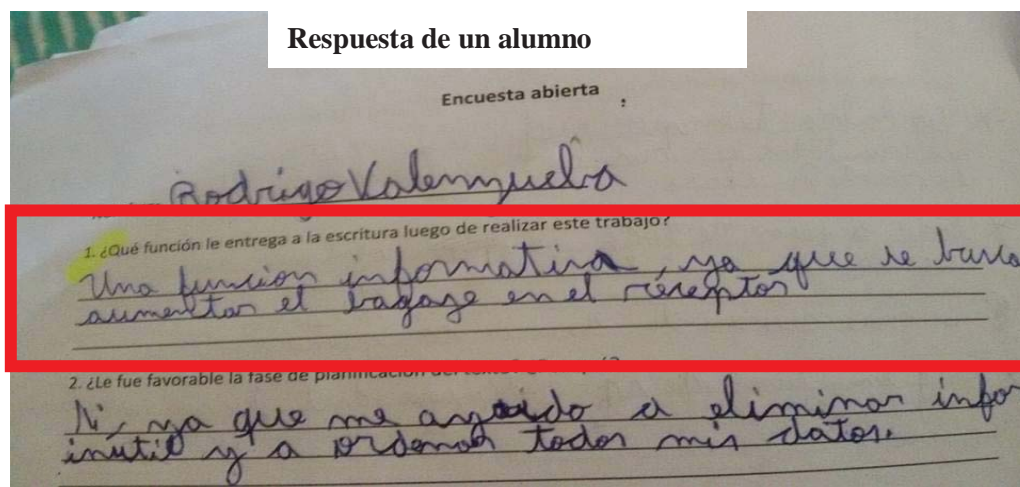 Respuesta de un alumno
Encuesta abierta
Rodrigo Valenzuela
1. ¿Qué función le entrega a la escritura luego de realizar este trabajo?
Una funcion informativa, ya que se busca
aumentar el bagage en el receptor
2. ¿Le fue favorable la fase de planificación del
Si, ya que me ayudo a eliminar infor
inutil y a ordenar todos mis datos.